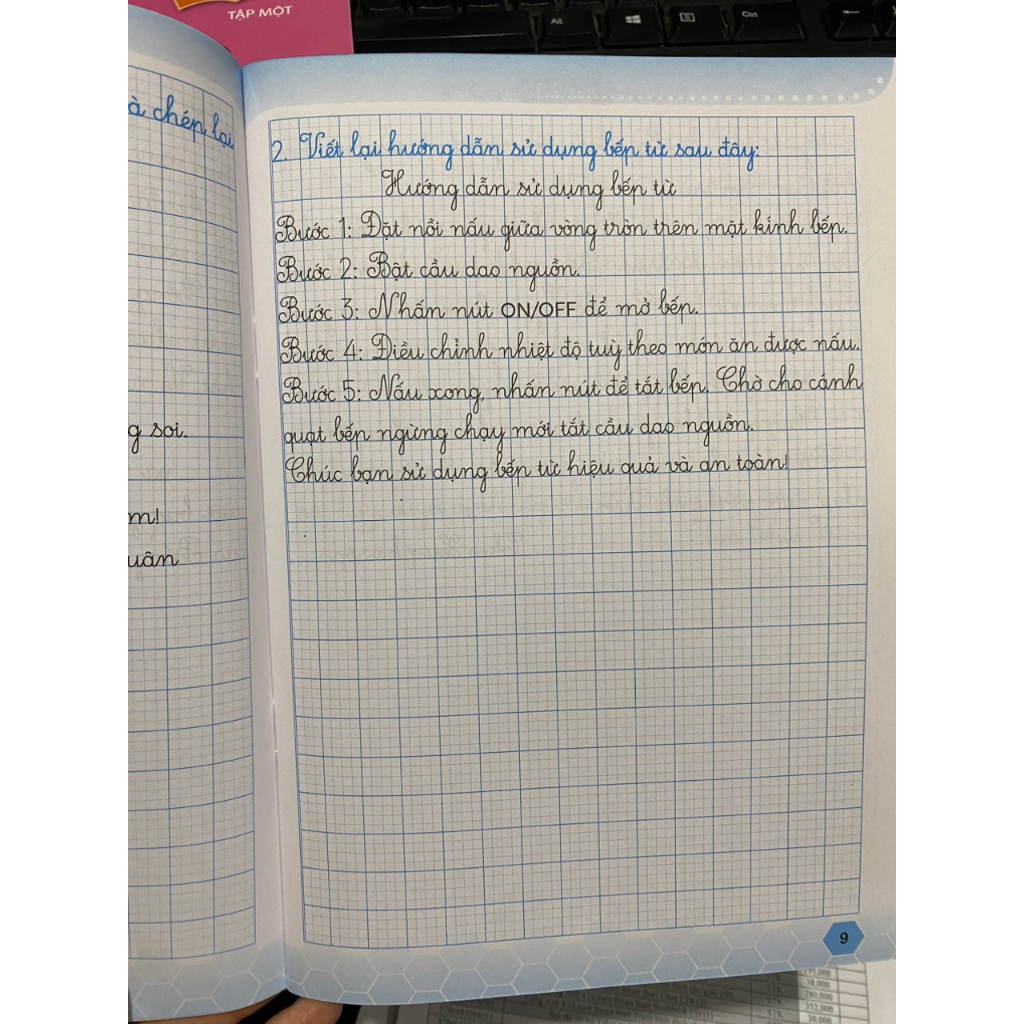 TẬP MỘT
Alt
Ctrl
à chép lại
g sợi.
m!
uân
2. Viết lại hướng dẫn sử dụng bếp từ sau đây:
Hướng dẫn sử dụng bếp từ
Bước 1: Đặt nồi nấu giữa vòng tròn trên mặt kính bếp.
Bước 2: Bật cầu dao nguồn.
Bước 3: Nhấn nút ON/OFF để mở bếp.
Bước 4: Điều chỉnh nhiệt độ tuỳ theo món ăn được nấu.
Bước 5: Nấu xong, nhấn nút để tắt bếp. Chờ cho cánh
quạt bếp ngừng chạy mới tắt cầu dao nguồn.
Chúc bạn sử dụng bếp từ hiệu quả và an toàn!
9